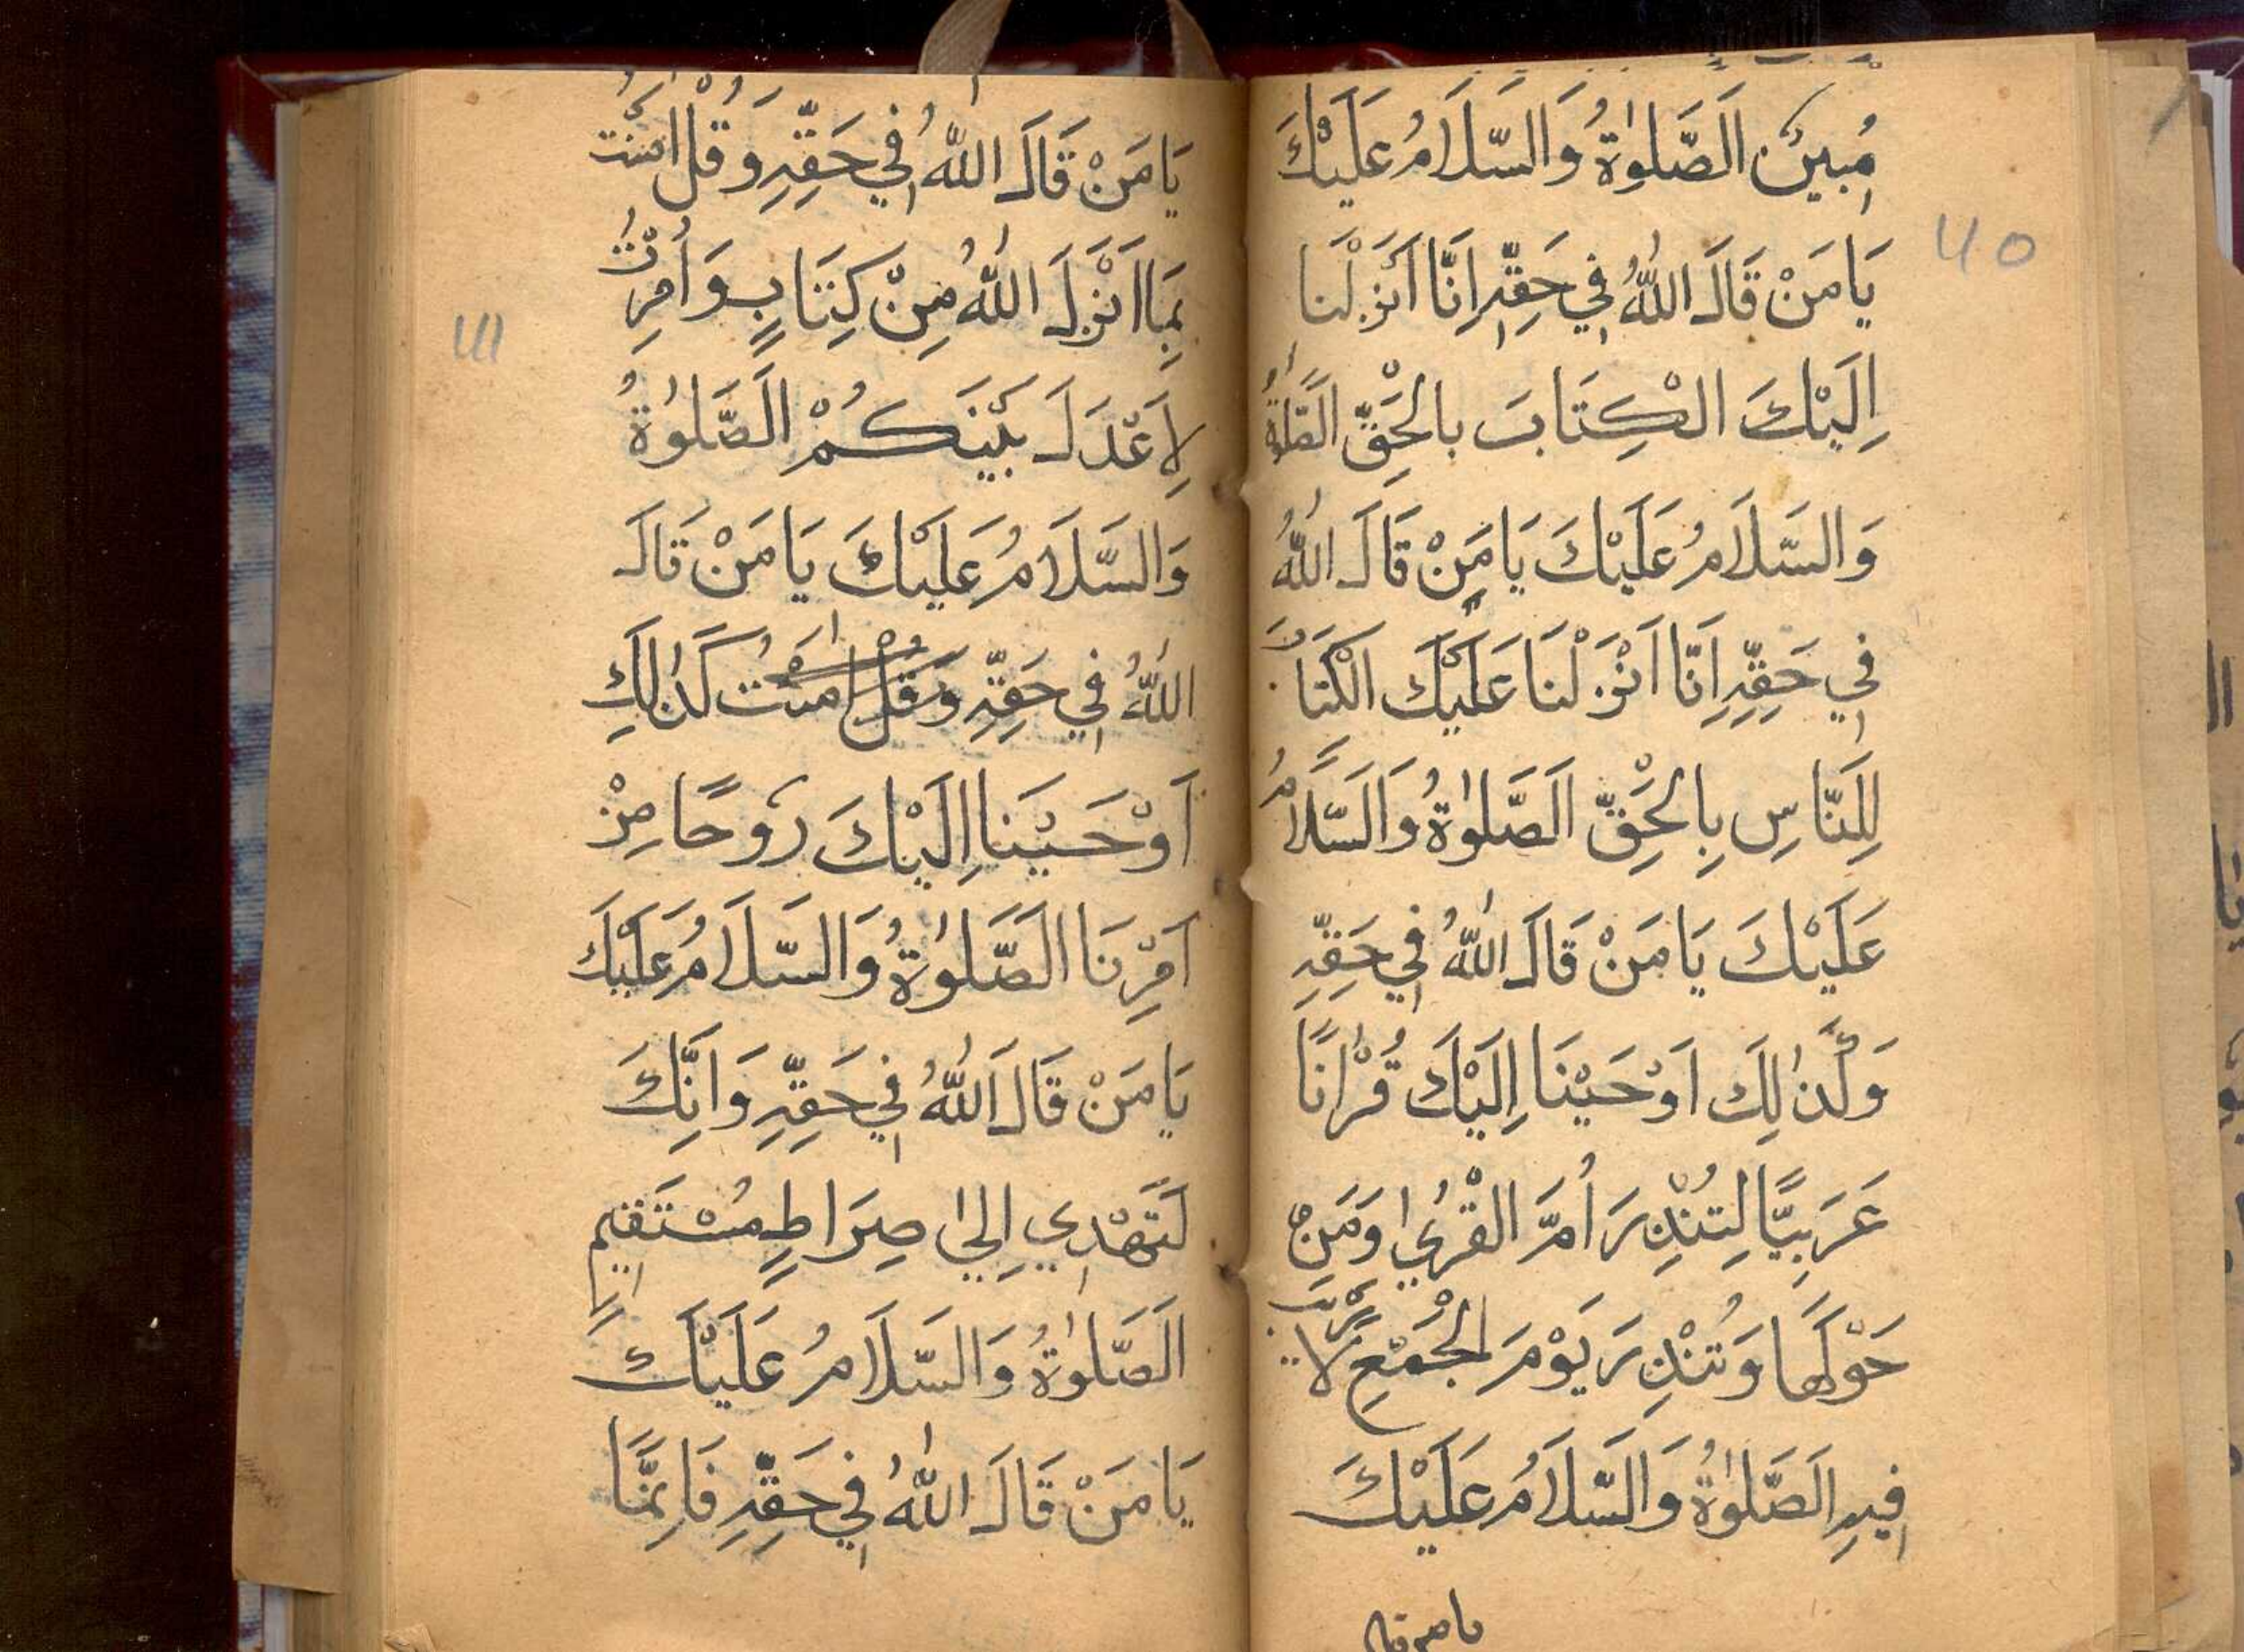 مُبِينٌ الَصَّلٰوةُ وَالسَّلَامُ عَلَيْكَ
يَا مَنْ قَالَ اللّٰهُ فِي حَقِّهِ اِنَّا اَنْزَلْنَا
اِلَيْكَ الْكِتَابَ بالْحَقِّ الَصَّلٰوةُ
وَالسَّلَامُ عَلَيْكَ يَا مَنْ قَالَ اللّٰهُ
فِي حَقِّهِ اِنَّا اَنْزَلْنَا عَلَيْكَ الْكتَابَ
لِلنَّاسِ بِالْحَقِّ الَصَّلٰوةُ وَالَسَّلَامُ
عَلَيْكَ يَا مَنْ قَالَ اللّٰهُ فِي حَقِّهِ
وَكَذٰلِكَ اَوْحَيْنَا اِلَيْكَ قُرْاٰنًا
عَرَبِيًّا لِتُنْذِرَ اُمَّ الْقُرٰي وَمَنْ
حَوْلَهَا وَتُنْذِرَ يَوْمَ الْجَمْعِ لَا رَيْبَ
فِيهِ الَصَّلٰوةُ وَالَسَّلَامُ عَلَيْكَ
يا من قال
40
يَا مَنْ قَالَ اللّٰهُ فِي حَقِّهِ وَقُلْ اٰمَنْتُ
بِمَا اَنْزَلَ اللّٰهُ مِنْ كِتَابٍ وَاُمِرْتُ
لِاَعْدَلَ بَيْنَكُمْ الَصَّلٰوةُ
وَالسَّلَامُ عَلَيْكَ يَا مَنْ قَالَ
اللّٰهُ فِي حَقِّهِ وَقُلْ اٰمَنْتُ كَذٰلِكَ
اَوْحَيْنَا اِلَيْكَ رُوحًا مِنْ
اَمْرِنَا الَصَّلٰوةُ وَالسَّلَامُ عَلَيْكَ
يَا مَنْ قَالَ اَللّٰهُ فِي حَقِّهِ وَاِنَّكَ
لَتَهْدِي اِلٰي صِرَاطٍ مُسْتَقِيمٍ
الَصَّلٰوةُ وَالسَّلَامُ عَلَيْكَ
يَا مَنْ قَالَ اللّٰهُ فِي حَقِّهِ فَاِنَّمَا
41